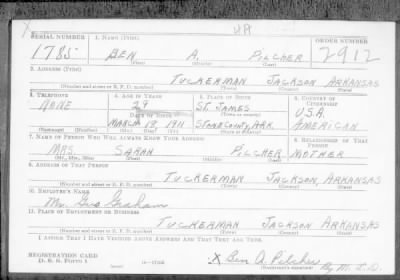 X UR
SERIAL NUMBER 1. NAME (Print) ORDER NUMBER
1785 BEN A. PILCHER 2912
(First) (Middle) (Last)
2. ADDRESS (Print)
TUCKERMAN JACKSON ARKANSAS
(Number and street or R. F. D. number) (Town) (County) (State)
3. TELEPHONE 4. AGE IN YEARS 5. PLACE OF BIRTH 6. COUNTRY OF CITIZENSHIP
NONE 29 ST. JAMES U.S.A.
DATE OF BIRTH (Town or county)
MARCH 13, 1911 STONE COUNTY, ARK. AMERICAN
(Exchange) (Number) (Mo.) (Day) (Yr.) (State or country)
7. NAME OF PERSON WHO WILL ALWAYS KNOW YOUR ADDRESS 8. RELATIONSHIP OF THAT PERSON
MRS. SARAH PILCHER MOTHER
(Mr., Mrs., Miss) (First) (Middle) (Last)
9. ADDRESS OF THAT PERSON
TUCKERMAN JACKSON, ARKANSAS
(Number and street or R. F. D. number) (Town) (County) (State)
10. EMPLOYER'S NAME
Mr. Geo Graham
11. PLACE OF EMPLOYMENT OR BUSINESS
TUCKERMAN JACKSON ARKANSAS
(Number and street or R. F. D. number) (Town) (County) (State)
I AFFIRM THAT I HAVE VERIFIED ABOVE ANSWERS AND THAT THEY ARE TRUE.
REGISTRATION CARD
D. S. S. FORM 1 X Ben A. Pilcher
(Registrant's signature) By M. I. D.